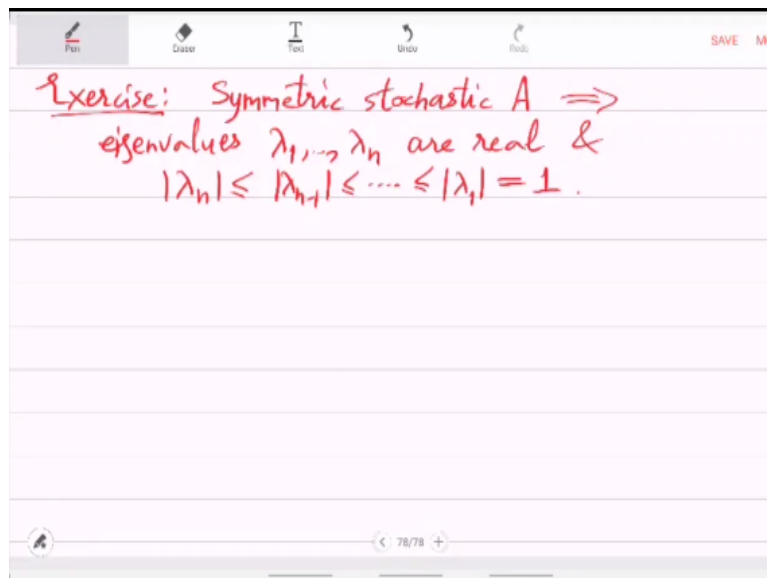 Pen Eraser Text Undo Redo SAVE
Exercise: Symmetric stochastic A ⇒
eigenvalues λ₁,..,λₙ are real &
|λₙ| ≤ |λₙ₋₁| ≤ .... ≤ |λ₁| = 1 .
78/78